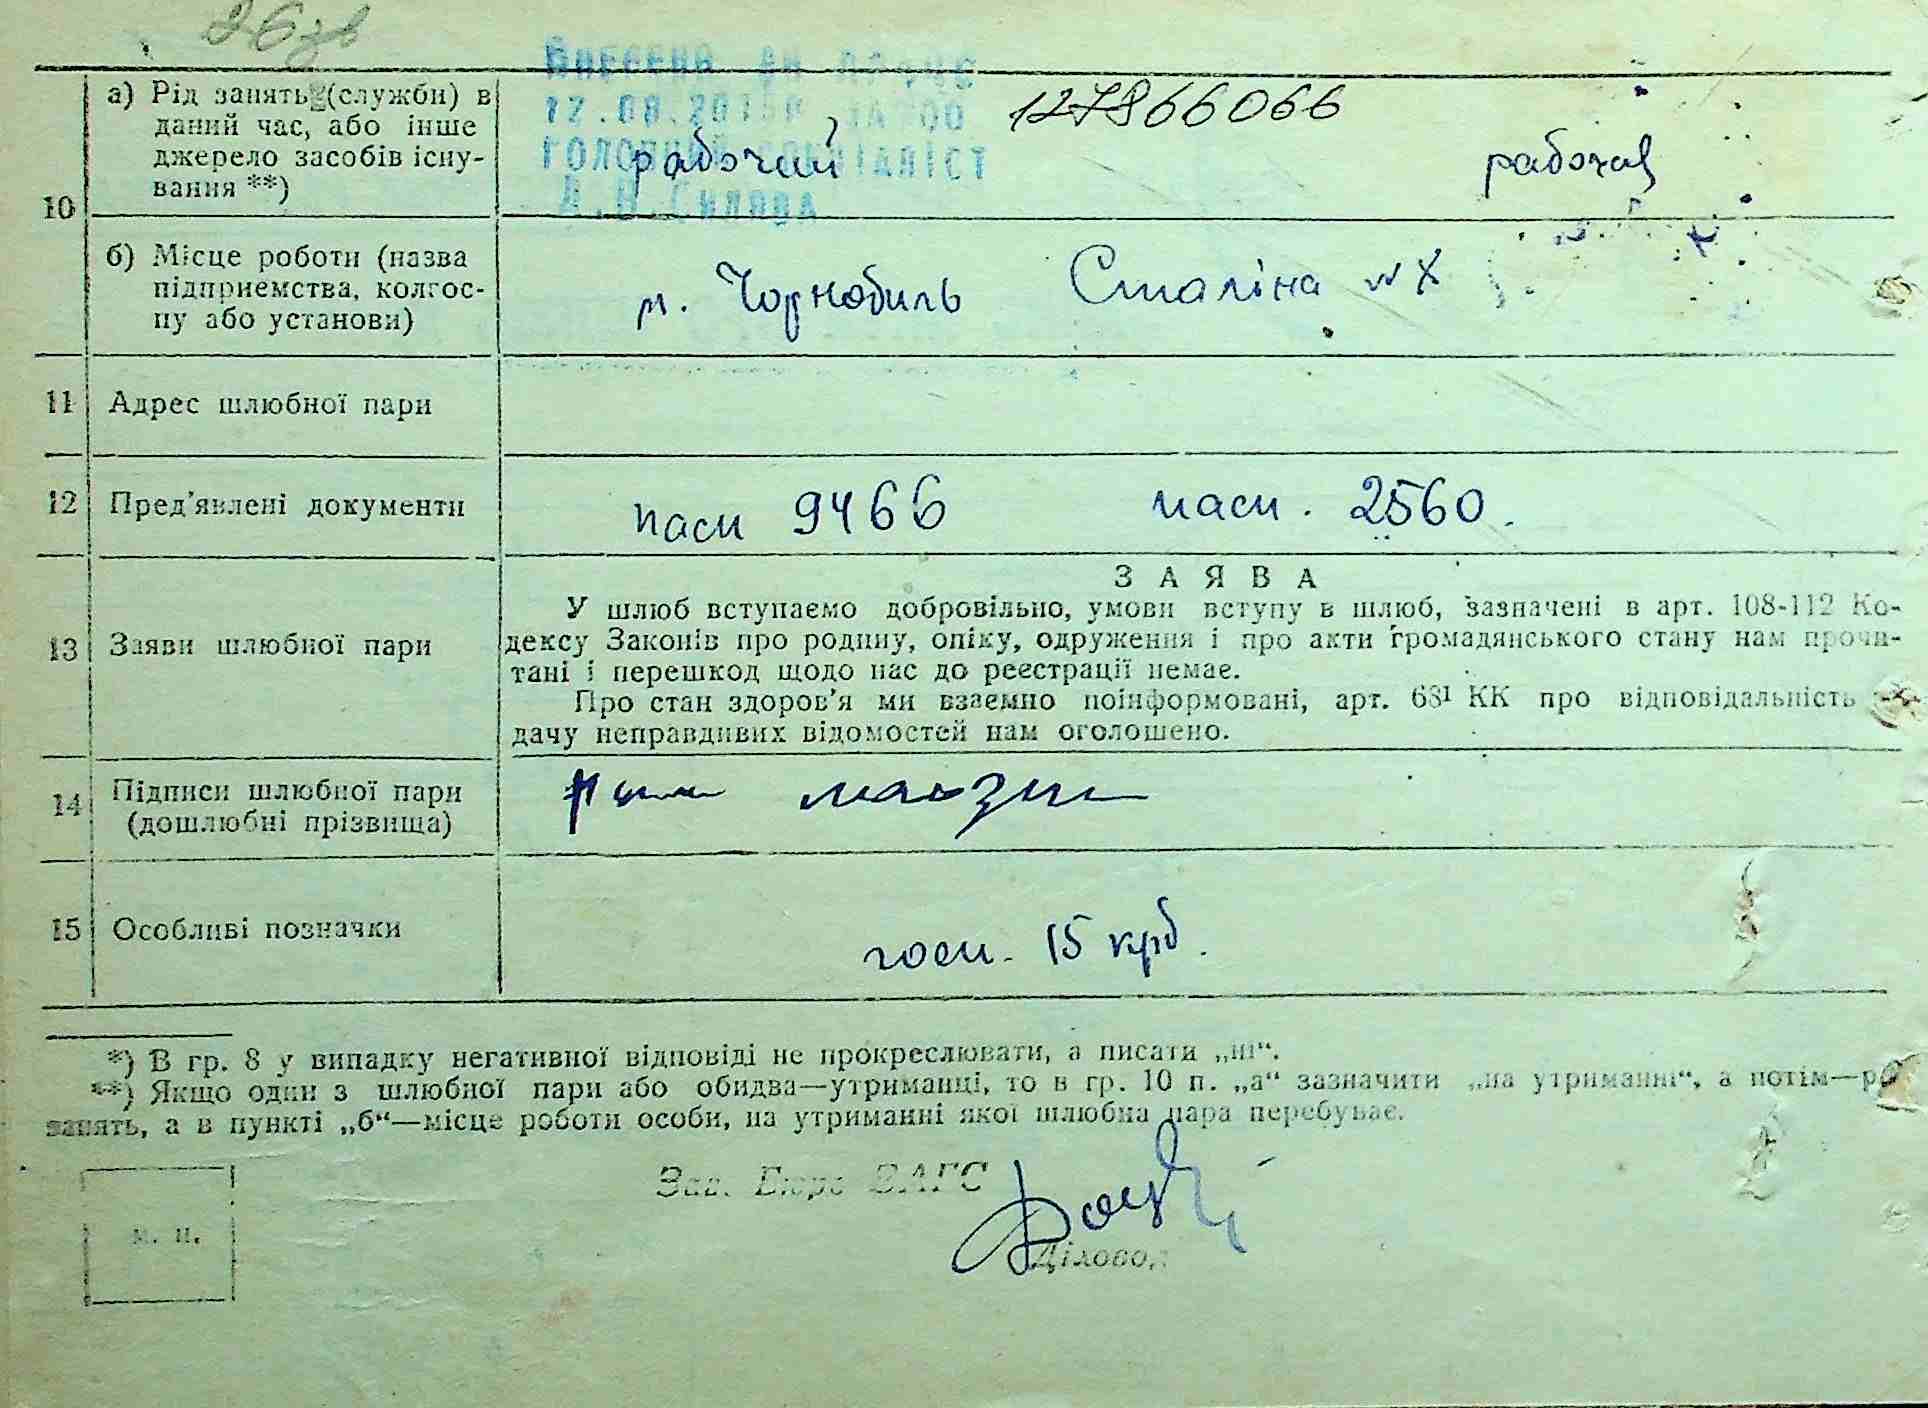 26 зв
127866066
а) Рід занять (служби) в
даний час, або інше
джерело засобів існу-
вання **)
10
рабочий рабочая
б) Місце роботи (назва
підприємства, колгос-
пу або установи)
м. Чорнобиль Сталіна
11 Адрес шлюбної пари
12 Пред'явлені документи
пасп 9466 пасп. 2560.
13 Заяви шлюбної пари
ЗАЯВА
У шлюб вступаємо добровільно, умови вступу в шлюб, зазначені в арт. 108-112 Ко-
дексу Законів про родину, опіку, одруження і про акти громадянського стану нам прочи-
тані і перешкод щодо нас до реєстрації немає.
Про стан здоров'я ми взаємно поінформовані, арт. 68¹ КК про відповідальність
дачу неправдивих відомостей нам оголошено.
14 Підписи шлюбної пари
(дошлюбні прізвища)
15 Особливі позначки
госп. 15 крб.
*) В гр. 8 у випадку негативної відповіді не прокреслювати, а писати „ні“.
**) Якщо один з шлюбної пари або обидва—утриманці, то в гр. 10 п. „а“ зазначити „на утриманні“, а потім—рід
занять, а в пункті „б“—місце роботи особи, на утриманні якої шлюбна пара перебуває.
Зав. Бюро ЗАГС
м. п.
Діловод